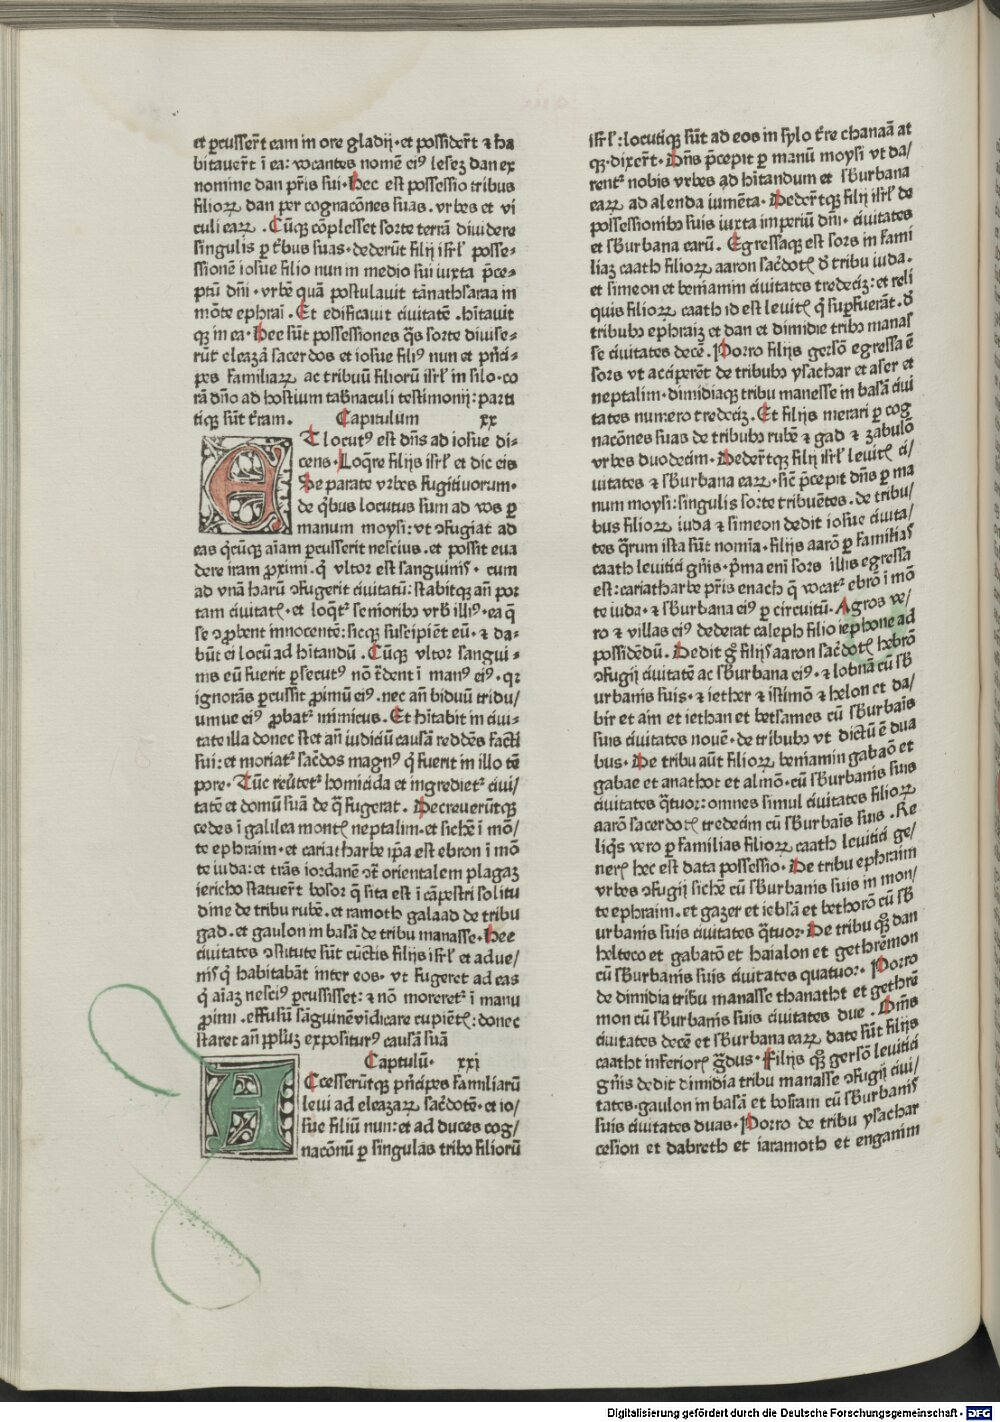 et ꝑcusser̄t eam in ore gladij·et possider̄t ⁊ ha
bitauer̄t ī ea: vocantes nomē eiꝰ leseʒ dan ex
nomine dan pr̄is sui·Hec est possessio tribus
filioꝝ dan per cognacōnes suas.vrbes et vi
culi eaꝝ .Cūqꝫ cōplesset sorte terrā diuidere
singulis ꝑ t̄bus suas·dederūt filij isrl̄ posse⸗
ssionē iosue filio nun in medio sui iuxta p̄ce⸗
ptū dn̄i·vrbē quā postulauit tānathsaraa in
mōte ephraī.Et edificauit ciuitatē.hitauit
qꝫ in ea·Hee sūt possessiones q̄s sorte diuise⸗
rūt eleazā sacerdos et iosue filiꝰ nun et pn̄ci⸗
pes familiaꝝ ac tribuū filiorū isrl̄ in silo·co
rā dn̄o ad hostium tab̄naculi testimonij: parti
tiqꝫ sūt t̄ram. Capitulum xx
ET locutꝰ est dn̄s ad iosue di⸗
cens·Loq̄re filijs isrl̄ et dic eis
Separate vrbes fugitiuorum·
de q̄bus locutus sum ad vos ꝑ
manum moysi: vt ↄfugiat ad
eas q̄cūqꝫ aīam ꝑcusserit nescius.et possit eua
dere iram ꝓximi.q̄ vltor est sanguinis·cum
ad vnā harū ↄfugerit ciuitatū: stabitqꝫ an̄ por
tam ciuitatꝭ·et loq̄tᷣ senioribꝰ vrb̄ illiꝰ·ea q̄
se ↄꝓbent innocentē: sicqꝫ suscipiēt eū·⁊ da⸗
būt ei locū ad hitandū.Cūqꝫ vltor sangui⸗
nis eū fuerit ꝑsecutꝰ nō t̄dent ī manꝰ eiꝰ·qꝛ
ignorās ꝑcussit ꝓimū eiꝰ.nec an̄ biduū tridu/
umue eiꝰ ꝓbatᷣ inimicus.Et hitabit in ciui⸗
tate illa donec stet an̄ iudiciū causā reddēs facti
sui: et moriatᷣ sac̄dos magnꝰ q̄ fuerit in illo tē
pore·Tūc reūtetᷣ homicida et ingredietᷣ ciui/
tatē et domū suā de q̄ fugerat.Decreuerūtqꝫ
cedes ī galilea montꝭ neptalim·et sichē ī mō/
te ephraim·et cariatharbe ip̄a est ebron ī mō
te iuda: et trās iordanē ↄt̄ orientalem plagaʒ
iericho statuer̄t bosor q̄ sita est ī cāpestri solitu
dine de tribu rubē.et ramoth galaad de tribu
gad.et gaulon in basā de tribu manasse·Hee
ciuitates ↄstitute sūt cūctis filijs isrl̄ et adue/
nis q̄ habitabāt inter eos·vt fugeret ad eas
q̄ aīaʒ nesciꝰ ꝑcussisset: ⁊ nō moreretᷣ ī manu
ꝓimi·effusū sāguinē vīdicare cupiētꝭ: donec
staret an̄ ppl̄uʒ expositurꝰ causā suā
Captulū· xxi
ACcesserūtqꝫ pn̄cipes familiarū
leui ad eleazaꝝ sac̄dotē·et io/
sue filiū nun: et ad duces cog/
nacōnū ꝑ singulas tribꝰ filiorū
isrl̄: locutiqꝫ sūt ad eos in sylo t̄re chanaā at
qꝫ·dixer̄t·Dn̄s p̄cepit ꝑ manū moysi vt da/
rentᷣ nobis vrbes ad hitandum et sb̄urbana
eaꝝ ad alenda iumēta·Deder̄tqꝫ filij isrl̄ de
possessionibꝰ suis iuxta imperiū dn̄i·ciuitates
et sb̄urbana earū.Egressaqꝫ est sors in fami
liaʒ caath filioꝝ aaron sac̄dotꝭ d̄ tribu iuda·
et simeon et beniamin ciuitates tredeciʒ: et reli
quis filioꝝ caath id est leuitꝭ q̄ suꝑfuerāt.d̄
tribubꝰ ephraiʒ et dan et dimidie tribꝰ manas
se ciuitates decē.Porro filijs gersō egressa ē
sors vt acciperēt de tribubꝰ ysachar et aser et
neptalim·dimidiaqꝫ tribu manesse in basā ciui
tates numero tredeciʒ.Et filijs merari ꝑ cog
nacōnes suas de tribubꝰ rubē ⁊ gad ⁊ zabulō
vrbes duodecim·Deder̄tqꝫ filij isrl̄ leuitꝭ ci/
uitates ⁊ sb̄urbana eaꝝ·sic̄ p̄cepit dn̄s ꝑ ma
num moysi: singulis sorte tribuētes.de tribu/
bus filioꝝ iuda ⁊ simeon dedit iosue ciuita/
tes q̄rum ista sūt nomīa·filijs aarō ꝑ familias
caath leuitici gn̄is·p̄ma eni sors illis egressa
est: cariatharbe pr̄is enach q̄ vocatᷣ ebrō ī mō
te iuda·⁊ sb̄urbana eiꝰ ꝑ circuitū·Agros ve/
ro ⁊ villas eiꝰ dederat caleph filio iephone ad
possidēdū.Dedit gͦ filijs aaron sac̄dotꝭ hebrō
ↄfugij ciuitatē ac sb̄urbana eiꝰ·⁊ lobnā cū sb̄
urbanis suis·⁊ iether ⁊ istimō ⁊ helon et da/
bir et ain et iethan et betsames cū sb̄urbais
suis ciuitates nouē·de tribubꝰ vt dictū ē dua
bus·De tribu aūt filioꝝ beniamin gabaō et
gabae et anathot et almō·cū sb̄urbanis suis
ciuitates q̄tuor: omnes simul ciuitates filioꝝ
aarō sacerdotꝭ tredecim cū sb̄urbais suis.Re
liqͥs vero ꝑ familias filioꝝ caath leuitici ge/
nerꝭ hec est data possessio·De tribu ephraim
vrbes ↄfugij sichē cū sb̄urbanis suis in mon/
te ephraim.et gazer et iebsā et bethorō cū sb̄
urbanis suis ciuitates q̄tuor·De tribu qͦꝫ dan
helteco et gabatō et haialon et gethrēmon
cū sb̄urbanis suis ciuitates quatuor·Porro
de dimidia tribu manasse thanatht et gethrē
mon cū sb̄urbanis suis ciuitates due.Om̄s
ciuitates decē et sb̄urbana eaꝝ date sūt filijs
caatht inferiorꝭ gͣdus·Filijs qͦꝫ gersō leuitici
gn̄is dedit dimidia tribu manasse ↄfugij ciui/
tates·gaulon in basā et bosram cū sb̄urbanis
suis ciuitates duas·Porro de tribu ysachar
cesion et dabreth et iaramoth et engannim
Digitalisierung gefördert durch die Deutsche Forschungsgemeinschaft - DFG